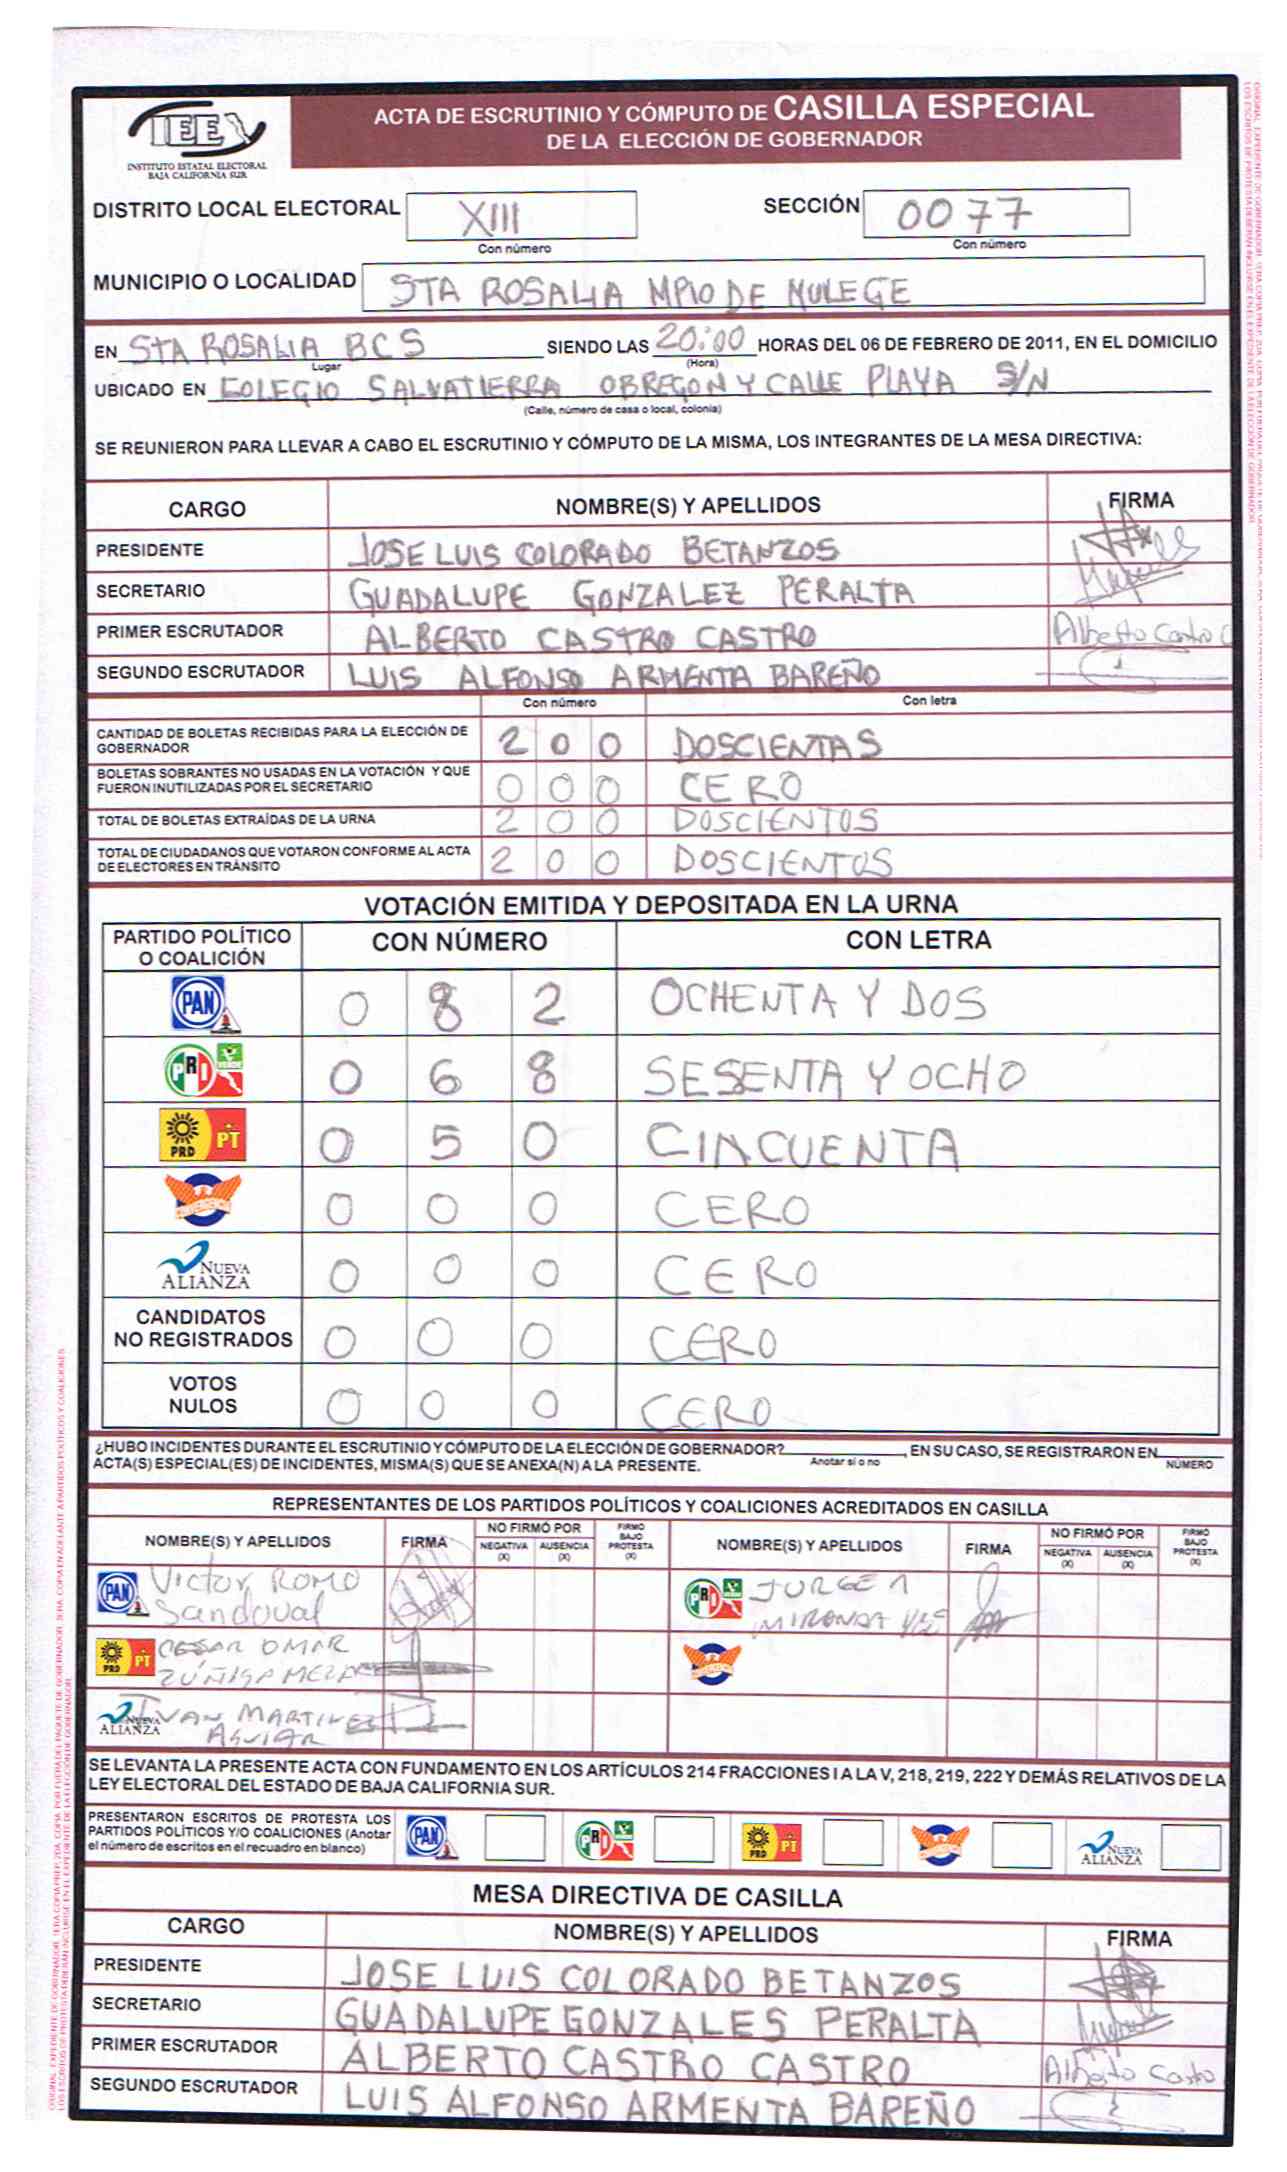 IEE
INSTITUTO ESTATAL ELECTORAL
BAJA CALIFORNIA SUR
ACTA DE ESCRUTINIO Y CÓMPUTO DE CASILLA ESPECIAL
DE LA ELECCIÓN DE GOBERNADOR
DISTRITO LOCAL ELECTORAL XIII SECCIÓN 0077
Con número Con número
MUNICIPIO O LOCALIDAD STA ROSALIA MPIO DE MULEGE
EN STA ROSALIA BCS SIENDO LAS 20:00 HORAS DEL 06 DE FEBRERO DE 2011, EN EL DOMICILIO
Lugar (Hora)
UBICADO EN COLEGIO SALVATIERRA OBREGON Y CALLE PLAYA S/N
(Calle, número de casa o local, colonia)
SE REUNIERON PARA LLEVAR A CABO EL ESCRUTINIO Y CÓMPUTO DE LA MISMA, LOS INTEGRANTES DE LA MESA DIRECTIVA:
CARGO NOMBRE(S) Y APELLIDOS FIRMA
PRESIDENTE JOSE LUIS COLORADO BETANZOS
SECRETARIO GUADALUPE GONZALEZ PERALTA
PRIMER ESCRUTADOR ALBERTO CASTRO CASTRO Alberto Castro C
SEGUNDO ESCRUTADOR LUIS ALFONSO ARMENTA BAREÑO
Con número Con letra
CANTIDAD DE BOLETAS RECIBIDAS PARA LA ELECCIÓN DE
GOBERNADOR 2 0 0 DOSCIENTAS
BOLETAS SOBRANTES NO USADAS EN LA VOTACIÓN Y QUE
FUERON INUTILIZADAS POR EL SECRETARIO 0 0 0 CERO
TOTAL DE BOLETAS EXTRAÍDAS DE LA URNA 2 0 0 DOSCIENTOS
TOTAL DE CIUDADANOS QUE VOTARON CONFORME AL ACTA
DE ELECTORES EN TRÁNSITO 2 0 0 DOSCIENTOS
VOTACIÓN EMITIDA Y DEPOSITADA EN LA URNA
PARTIDO POLÍTICO
O COALICIÓN CON NÚMERO CON LETRA
PAN 0 8 2 OCHENTA Y DOS
PRI VERDE 0 6 8 SESENTA Y OCHO
PRD PT 0 5 0 CINCUENTA
0 0 0 CERO
NUEVA ALIANZA 0 0 0 CERO
CANDIDATOS
NO REGISTRADOS 0 0 0 CERO
VOTOS
NULOS 0 0 0 CERO
¿HUBO INCIDENTES DURANTE EL ESCRUTINIO Y CÓMPUTO DE LA ELECCIÓN DE GOBERNADOR? , EN SU CASO, SE REGISTRARON EN
Anotar sí o no NÚMERO
ACTA(S) ESPECIAL(ES) DE INCIDENTES, MISMA(S) QUE SE ANEXA(N) A LA PRESENTE.
REPRESENTANTES DE LOS PARTIDOS POLÍTICOS Y COALICIONES ACREDITADOS EN CASILLA
NOMBRE(S) Y APELLIDOS FIRMA NO FIRMÓ POR NEGATIVA (X) AUSENCIA (X) FIRMÓ BAJO PROTESTA (X) NOMBRE(S) Y APELLIDOS FIRMA NO FIRMÓ POR NEGATIVA (X) AUSENCIA (X) FIRMÓ BAJO PROTESTA (X)
PAN Victor ROMO Sandoval PRI JORGE MIRANDA
PRD PT CESAR OMAR ZÚÑIGA MEZA
NUEVA ALIANZA IVAN MARTINEZ AGUIAR
SE LEVANTA LA PRESENTE ACTA CON FUNDAMENTO EN LOS ARTÍCULOS 214 FRACCIONES I A LA V, 218, 219, 222 Y DEMÁS RELATIVOS DE LA
LEY ELECTORAL DEL ESTADO DE BAJA CALIFORNIA SUR.
PRESENTARON ESCRITOS DE PROTESTA LOS
PARTIDOS POLÍTICOS Y/O COALICIONES (Anotar
el número de escritos en el recuadro en blanco) PAN PRI PRD PT NUEVA ALIANZA
MESA DIRECTIVA DE CASILLA
CARGO NOMBRE(S) Y APELLIDOS FIRMA
PRESIDENTE JOSE LUIS COLORADO BETANZOS
SECRETARIO GUADALUPE GONZALES PERALTA
PRIMER ESCRUTADOR ALBERTO CASTRO CASTRO Alberto Castro
SEGUNDO ESCRUTADOR LUIS ALFONSO ARMENTA BAREÑO